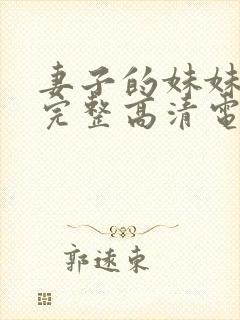 妻子的妹妹
完整高清電
郭遠東